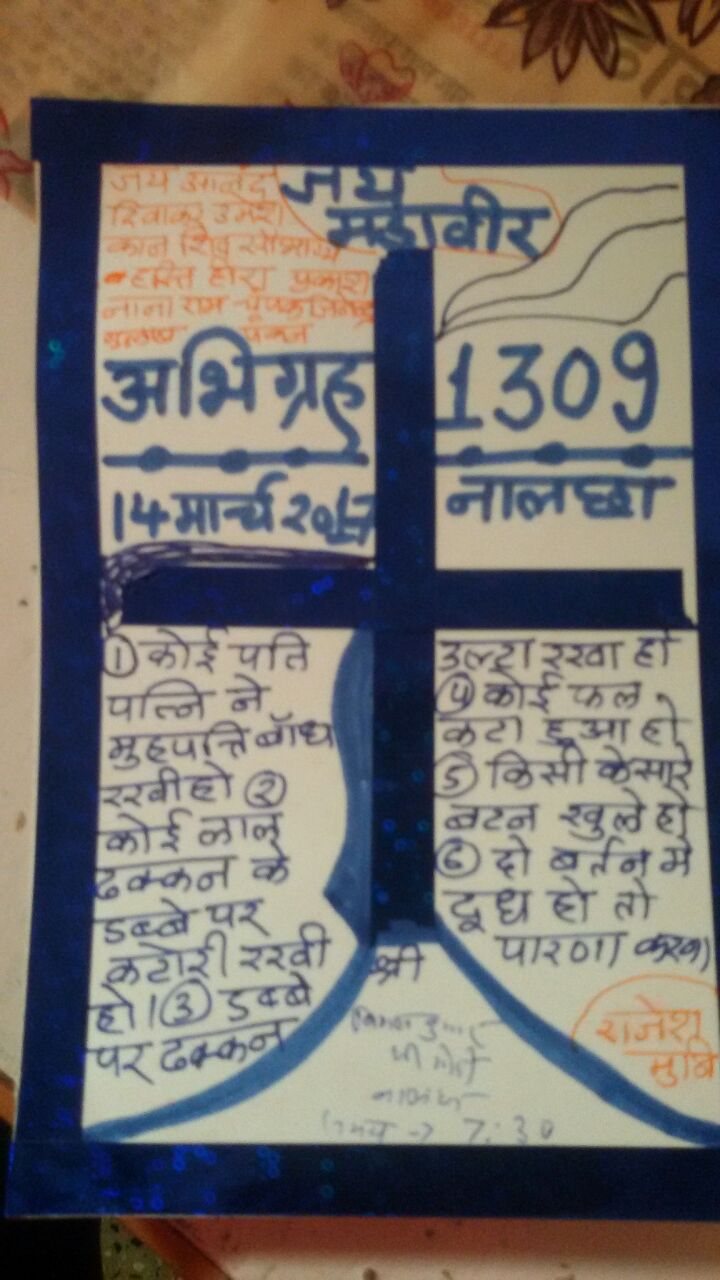 जय आनंद
दिवाकर उमेश
कान शिव सौभाग्य
हस्ति हीरा प्रकाश
नाना राम
जय
महावीर
अभिग्रह
1309
14 मार्च २०17
नालछा
① कोई पति
पत्नि ने
मुहपत्ति बाँध
रखी हो ②
कोई लाल
ढक्कन के
डब्बे पर
कटोरी रखी
हो। ③ डब्बे
पर ढक्कन
उल्टा रखा हो
④ कोई फल
कटा हुआ हो
⑤ किसी के सारे
बटन खुले हो
⑥ दो बर्तन मे
दूध हो तो
पारणा करना
श्री
7:30
राजेश
मुनि